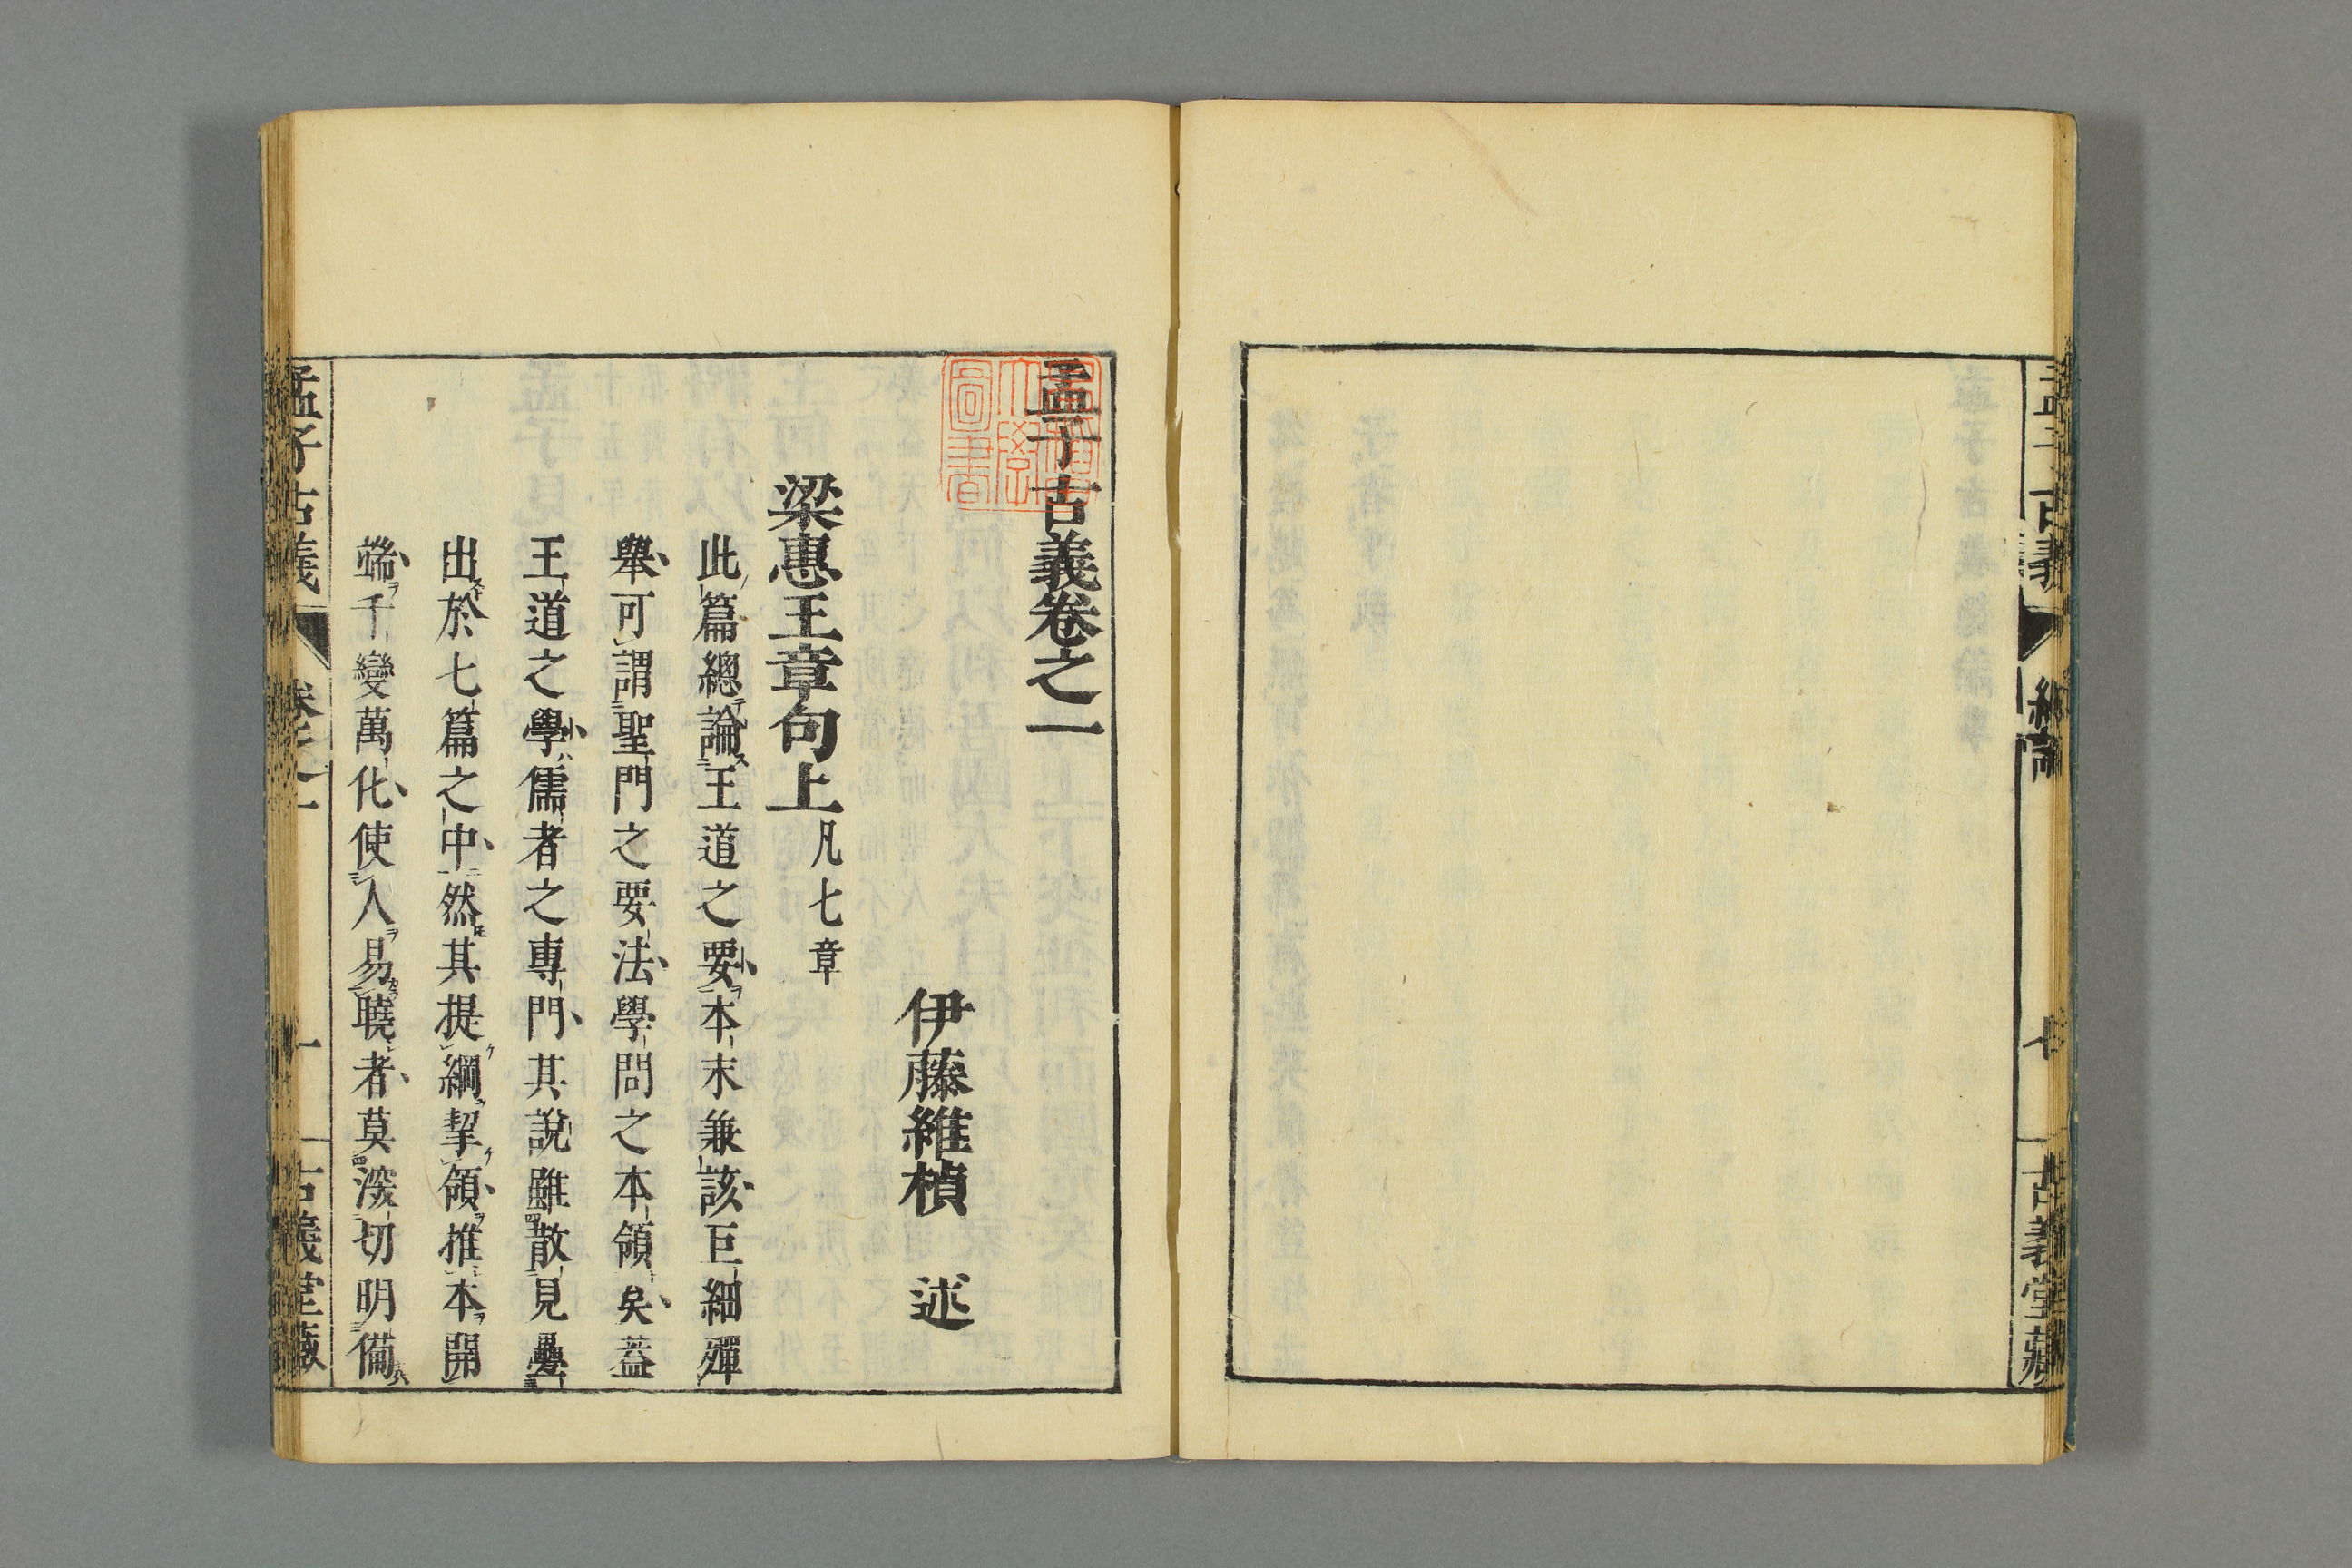 孟子古義
綱領
七
古義堂藏
孟子古義卷之一
伊藤維楨 述
梁惠王章句上 凡七章
此篇總論王道之要本末兼該巨細殫
舉可謂聖門之要法學問之本領矣蓋
王道之學儒者之專門其說雖散見疊
出於七篇之中然其提綱挈領推本開
端千變萬化使人易曉者莫深切明備
孟子古義
卷之一
一
古義堂藏